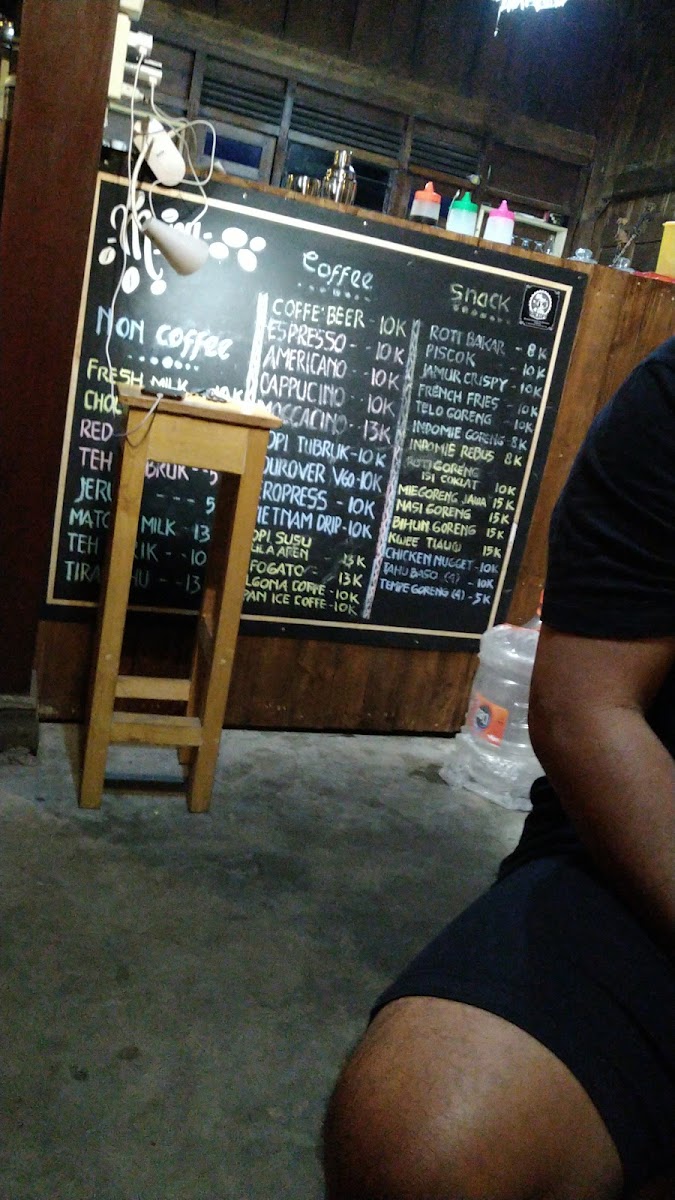 NON coffee
FRESH MILK
RED
TEH BRUK - 5
- - - 5
MILK - 13
TEH - - 10
- - 13
Coffee
COFFE BEER - 10K
ESPRESSO - 10K
AMERICANO - 10K
CAPPUCINO - 10K
MOCCACINO - 13K
OPI TUBRUK - 10K
OUROVER V60 - 10K
EROPRESS - 10K
VIETNAM DRIP - 10K
OPI SUSU
ULA AREN 13K
FOGATO - 13K
LGONA COFFE - 10K
PAN ICE COFFE - 10K
Snack
ROTI BAKAR - 8K
PISCOK - 10K
JAMUR CRISPY - 10K
FRENCH FRIES - 10K
TELO GORENG 10K
INDOMIE GORENG - 8K
INDOMIE REBUS 8K
ROTI GORENG
ISI COKLAT 10K
MIE GORENG JAWA 15K
NASI GORENG 15K
BIHUN GORENG 15K
KWEE TIAUW 15K
CHICKEN NUGGET - 10K
TAHU BASO (4) - 10K
TEMPE GORENG (4) - 5K